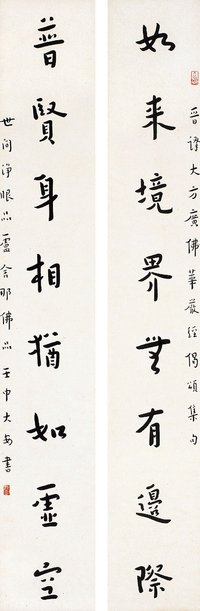 晉譯大方廣佛華嚴經偈頌集句
如来境界無有邊際
普賢身相猶如虛空
世間淨眼品盧舍那佛品 壬申大安書